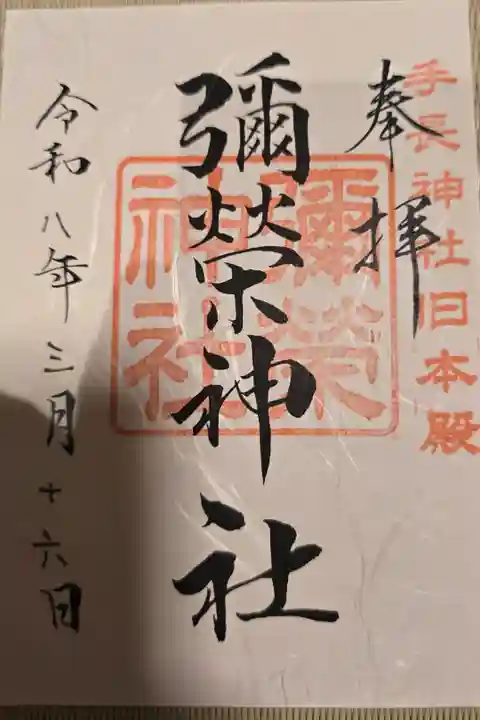 手長神社旧本殿
奉拝
彌榮神社
彌榮神社
令和八年三月十六日